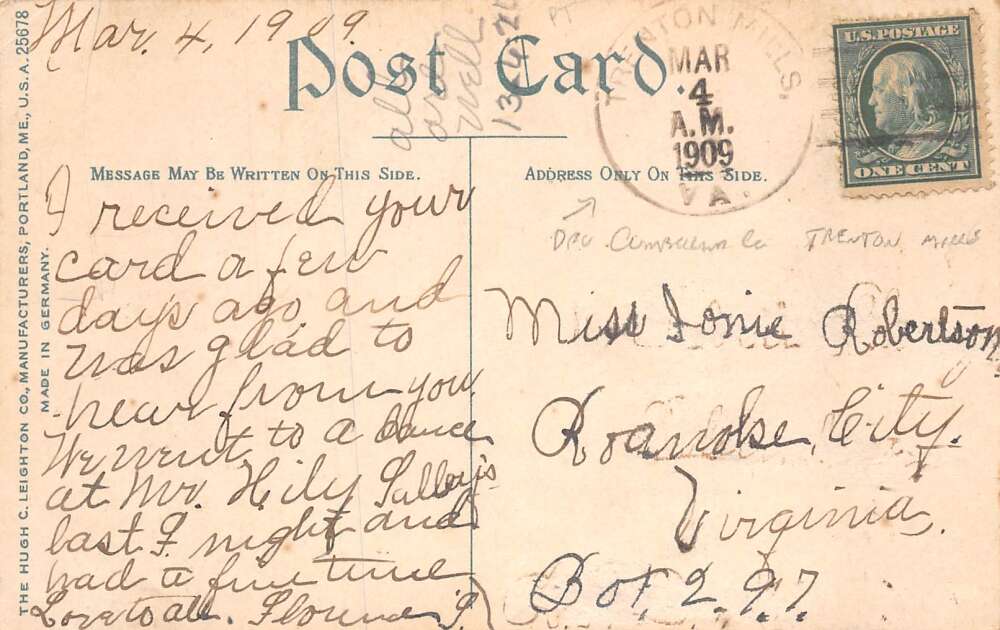 Mar. 4, 1909
Post Card.
TRENTON MILLS,
MAR
4
A.M.
1909
VA.
U.S. POSTAGE
ONE CENT
MESSAGE MAY BE WRITTEN ON THIS SIDE.
ADDRESS ONLY ON THIS SIDE.
THE HUGH C. LEIGHTON CO., MANUFACTURERS, PORTLAND, ME., U.S.A. 25678
MADE IN GERMANY.
I received your
card a few
days ago and
was glad to
hear from you
We went to a dance
at Mr. Hily
last F night and
had a fine time
Love to all. Florence
DPO Cumberland Co TRENTON MILLS
Miss Ionie Robertson
Roanoke City.
Virginia.
Box 297